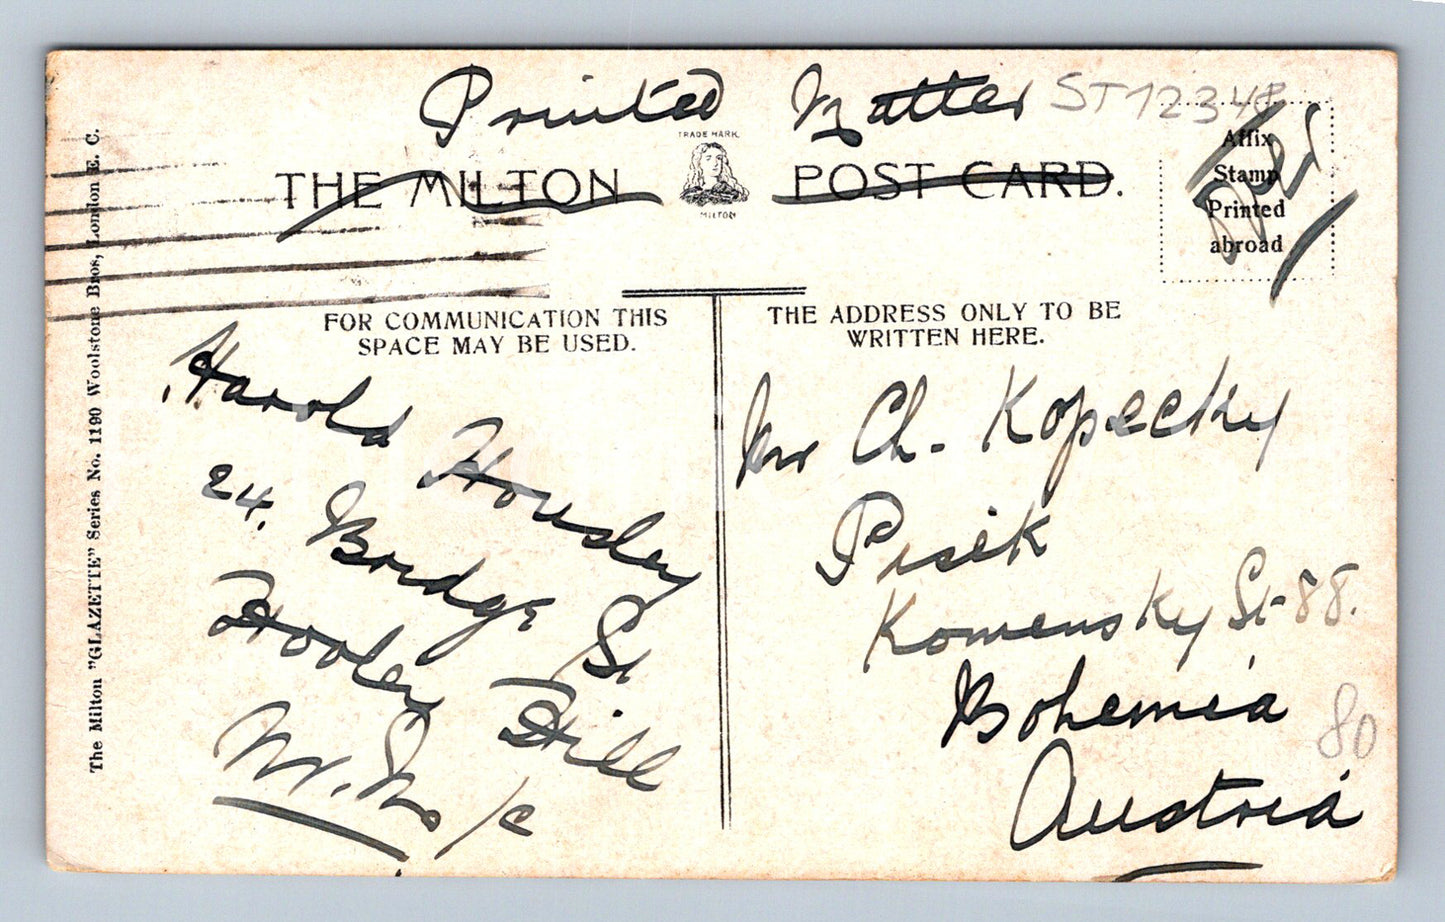 Printed Matter ST1234P
TRADE MARK
THE MILTON POST CARD.
MILTON
Affix
Stamp
Printed
abroad
The Milton "GLAZETTE" Series No. 1190 Woolstone Bros, London E. C.
FOR COMMUNICATION THIS
SPACE MAY BE USED.
Harold Housley
24. Bridge St
Hooley Hill
THE ADDRESS ONLY TO BE
WRITTEN HERE.
Mr Ch. Kopecky
Pisek
Komensky St 88.
Bohemia
80
Austria